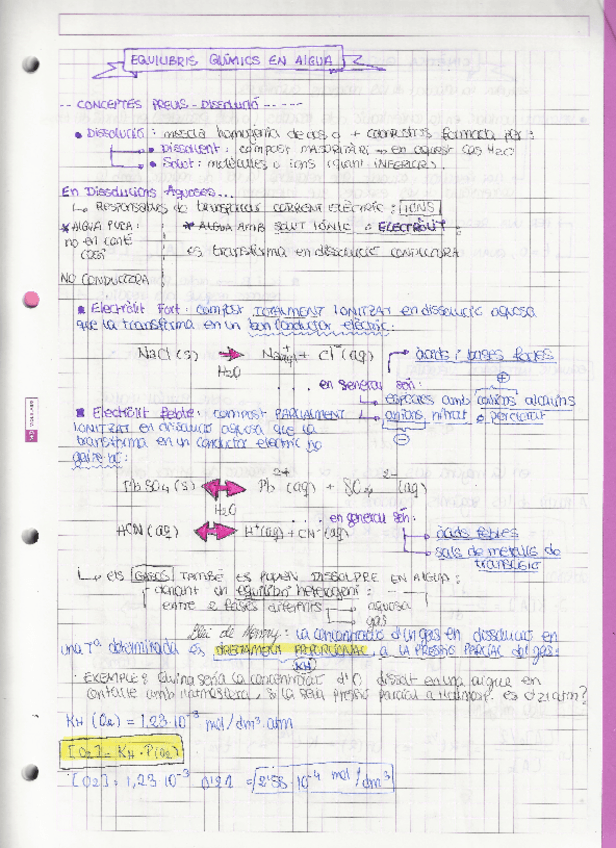 EQUILIBRIS QUÍMICS EN AIGUA
-- CONCEPTES PREVIS - DISSOLUCIÓ -----
• Dissolució: mescla homogenia de dos o + compostos formada per:
• Dissolvent: compost MAJORITARI → en aquest cas H2O
• Solut: molècules o ions (quant. INFERIOR).
En Dissolucions Aquoses...
↳ Responsables de transportar CORRENT ELÈCTRIC: IONS
* AIGUA PURA: * AIGUA AMB SOLUT IÒNIC = ELECTRÒLIT:
no en conté
es transforma en dissolució CONDUCTORA
NO CONDUCTORA
▪ Electròlit Fort: compost TOTALMENT IONITZAT en dissolució aquosa
que la transforma en un bon conductor elèctric:
NaCl (s) → Na+(aq) + Cl-(aq)
H2O
àcids i bases fortes
... en general són:
espècies amb cations alcalins +
anions nitrat o perclorat -
▪ Electròlit feble: compost PARCIALMENT
IONITZAT en dissolució aquosa que la
transforma en un conductor elèctric no
gaire bo:
PbSO4 (s) ↔ Pb2+ (aq) + SO4 2- (aq)
H2O
... en general són:
HCN (aq) ↔ H+(aq) + CN-(aq)
àcids febles
sals de metalls de
transició
↳ els GASOS TAMBÉ ES PODEN DISSOLDRE EN AIGUA:
donant un equilibri heterogeni:
entre 2 fases diferents
aquosa
gas
Llei de Henry: la concentració d'un gas en dissolució en
una Tª determinada és DIRECTAMENT PROPORCIONAL a LA PRESSIÓ PARCIAL del gas.
KH
· EXEMPLE: Quina seria la concentració d'O2 dissolt en una aigua en
contacte amb l'atmosfera, si la seva pressió parcial a l'atmosf. és 0'21 atm?
KH (O2) = 1,23·10-3 mol/dm3·atm
[O2] = KH · P(O2)
[O2] = 1,23·10-3 · 0'21 = 2'58·10-4 mol/dm3